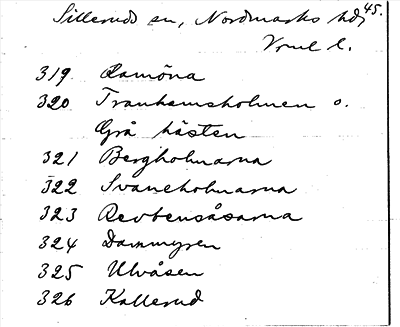 45.
Silleruds sn, Nordmarks hd,
Vrml l.
319 Ramöna
320 Tranhemsholmen o.
Grå hästen
321 Bergholmarna
322 Svaneholmarna
323 Revbensåsarna
324 Dammyren
325 Ulvåsen
326 Kallerud